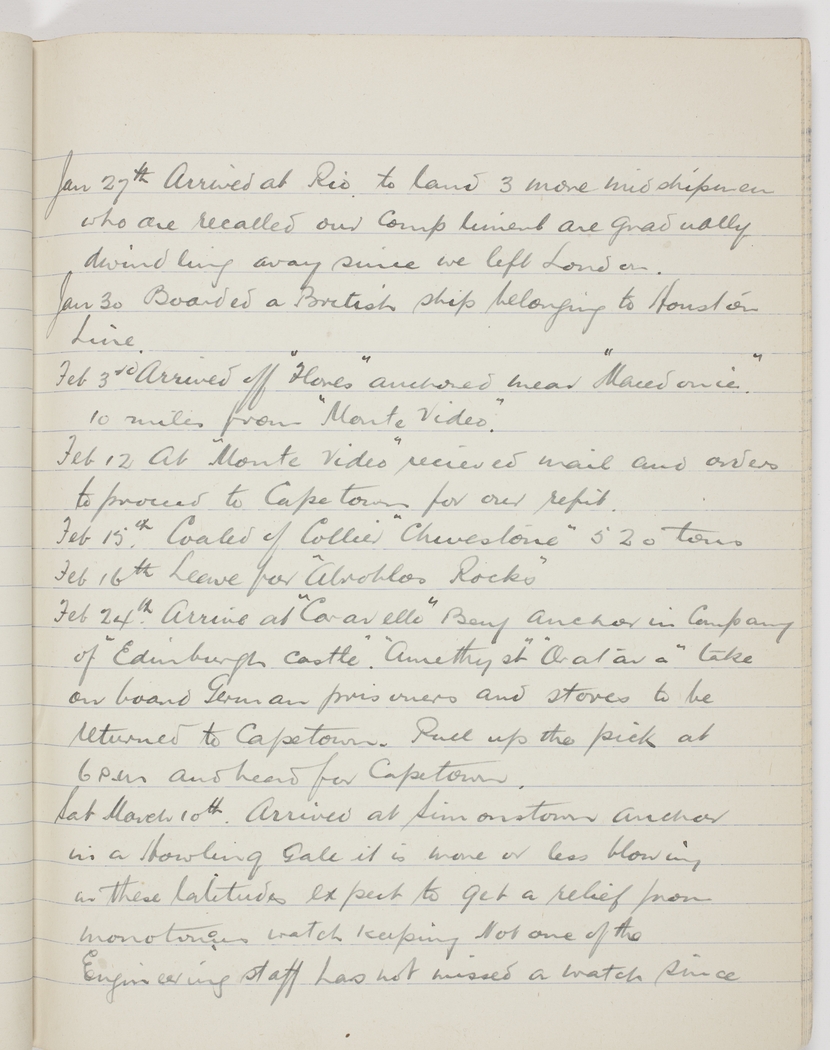 Jan 27th Arrived at Rio to land 3 more midshipmen
who are recalled our compliment are gradually
dwindling away since we left London.
Jan 30 Boarded a British ship belonging to Houston
Line.
Feb 3rd Arrived off "Flores" anchored near "Macedonia"
10 miles from "Monte Video".
Feb 12 At "Monte Video" recieved mail and orders
to proceed to Capetown for our refit.
Feb 15th. Coaled of Collier "Chivestone" 520 tons
Feb 16th Leave for "Abrohlos Rocks"
Feb 24th. Arrive at "Caravello" Bay anchor in Company
of "Edinburgh castle". "Amethyst" "Oratava" take
on board German prisoners and stores to be
returned to Capetown. Pull up the pick at
6 P.m and heard for Capetown.
Sat March 10th. Arrived at Simonstown anchor
in a Howling Gale it is more or less blowing
in these latitudes expect to get a relief from
watch keeping Not one of the
Engineering staff has not missed a watch since